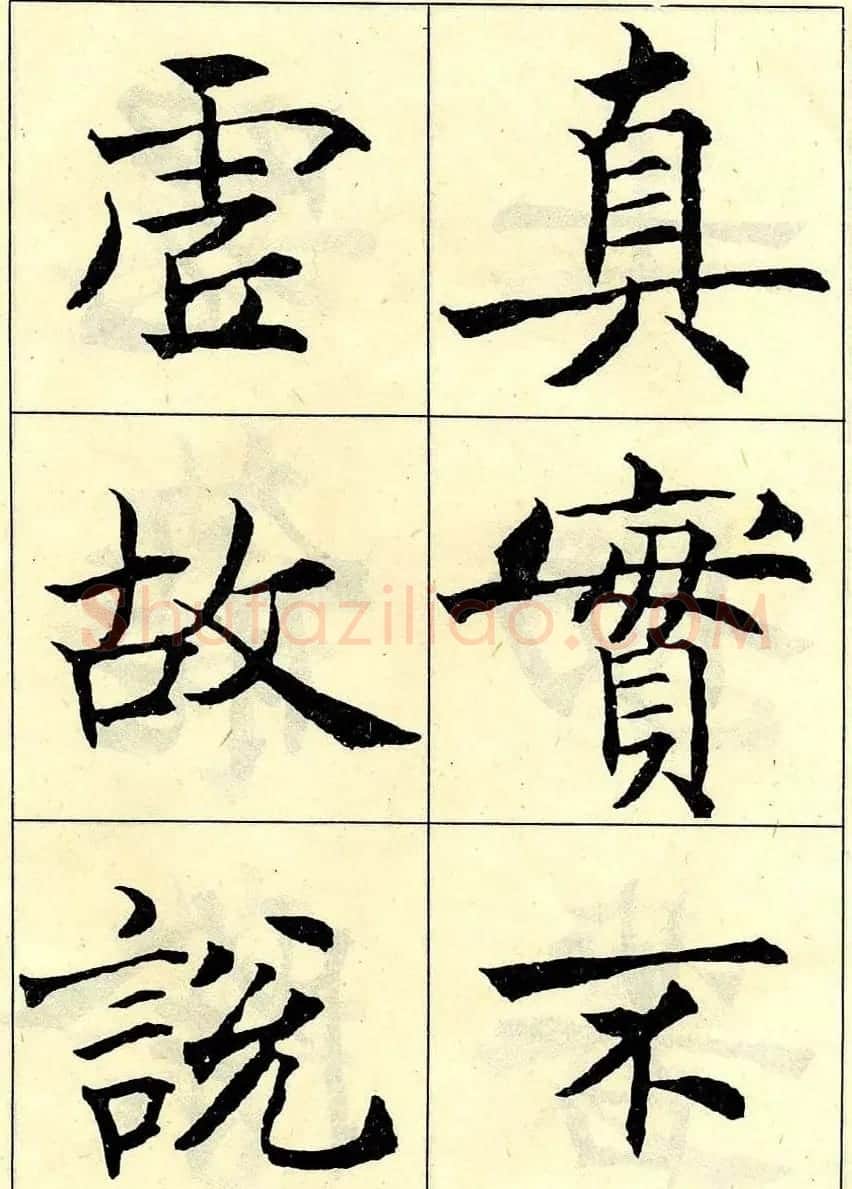 真實不
虛故說
Shufaziliao.COM